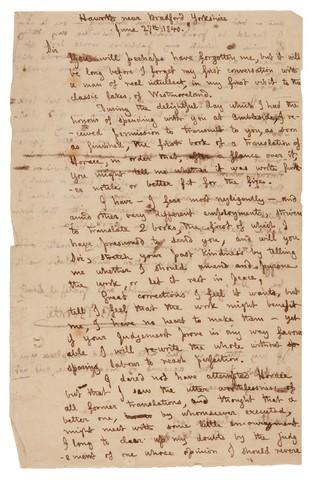 Haworth near Bradford Yorkshire
June 27th 1840.
Sir
You will perhaps have forgotten me, but it will
be long before I forget my first conversation with
a man of real intellect, in my first visit to the
classic lakes, of Westmoreland.
During the delightful day which I had the
honour of spending with you at Ambleside I re-
-ceived permission to transmit to you, as soon
as finished, the first book of a translation of
Horace, in order that, after a glance over it
you might tell me whether it was worth furth-
er notice or better fit for the fire.
I have — I fear most negligently — and
amid other very different employments, striven
to translate 2 books, the first of which I
have presumed to send you, and will you
Sir, stretch your past kindness by telling
me whether I should amend and pursue
the work, or let it rest in peace,
Great corrections I feel it wants, but
till I feel that the work might benefit
me, I have no heart to make them — yet
if your Judgement prove in any way favor
able I will re-write the whole without
sparing labour to reach perfection.
I dared not have attempted Horace
but that I saw the utter worthlessness of
all former translations, and thought that a
better one, by whomsoever executed,
might meet with some little encouragement.
I long to clear up my doubts by the judg
-ement of one whose opinion I should revere